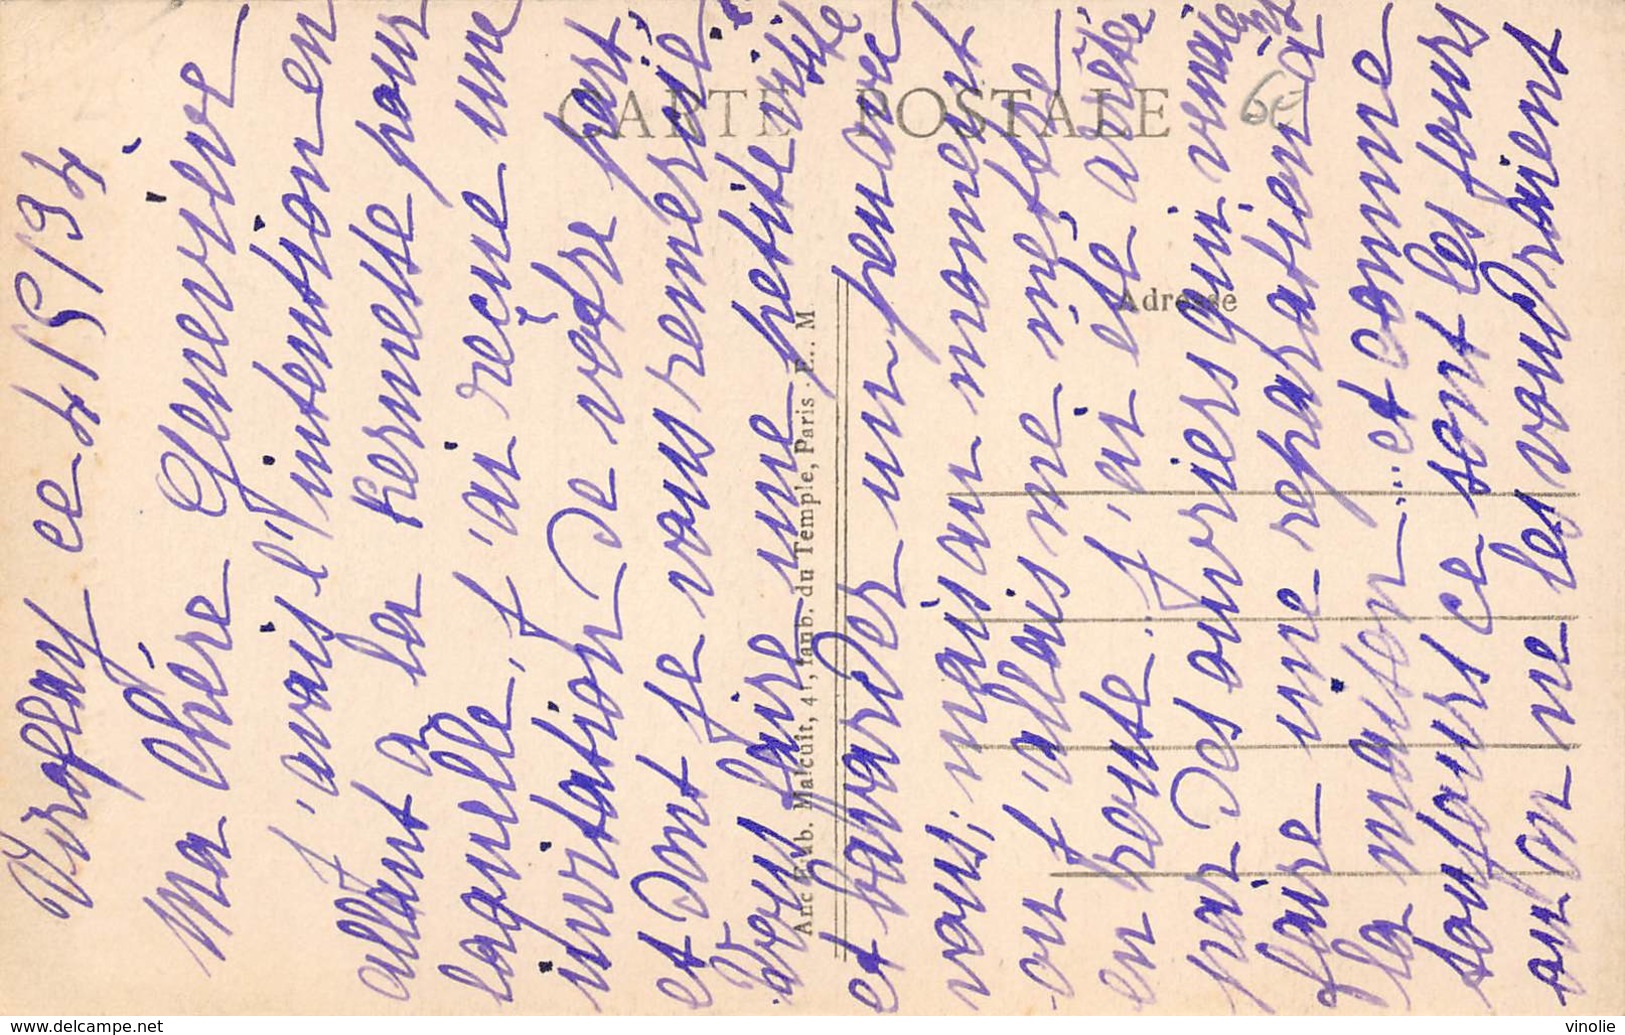 Viroflay ce 4/5/34
Ma Chère Geneviève
j'avais l'intention en
allant à la Kermesse pour
laquelle, j'ai reçue une
invitation de votre part,
et dont je vous remercie
vous faire une petite visite
et bavarder un peu avec
vous; mais au moment
ou j'allais me mettre
en route j'ai été arrêtée
par des ouvriers qui venaient
faire une reparation à
la maison... et comme
toujours ce sont les jours
ou l'on ne les voudraient
CARTE POSTALE
60
Adresse
Anc Etab. Malcuit, 41, faub. du Temple, Paris - E.. M
www.delcampe.net
vinolie